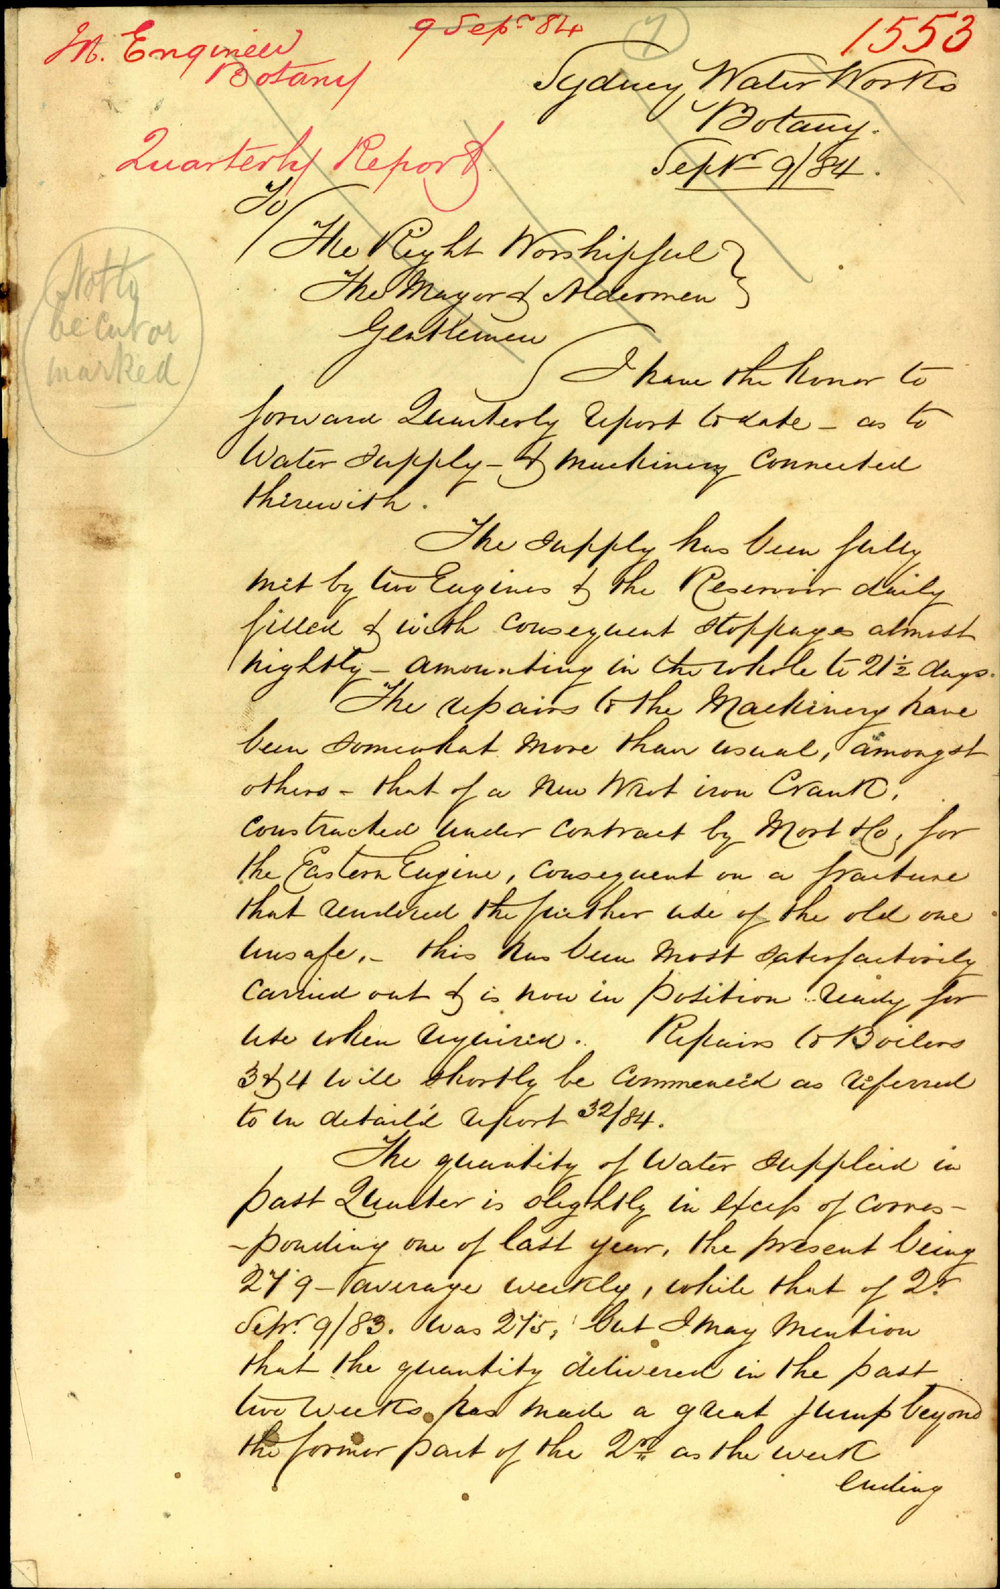 9 Sepr. 84
(7)
1553
In. Engineer
Botany
Sydney Water Works
Botany.
Septr 9/84.
Quarterly Report
To
The Right Worshipful
The Mayor & Aldermen
Gentlemen
Not to
be cut or
marked
I have the honor to
forward Quarterly report to date - as to
Water supply - & machinery connected
therewith.
The supply has been fully
met by two Engines & the Reservoir daily
filled & with consequent stoppages almost
nightly - amounting in the whole to 21½ days.
The repairs to the Machinery have
been somewhat more than usual, amongst
others - that of a new Wrot iron Crank,
constructed under contract by Mort & Co, for
the Eastern Engine, consequent on a fracture
that rendered the further use of the old one
unsafe, - this has been most satisfactorily
carried out & is now in position ready for
use when required. Repairs to Boilers
3 & 4 will shortly be commenced as referred
to in detail'd report 32/84.
The quantity of Water supplied in
past Quarter is slightly in excess of corres-
-ponding one of last year, the present being
27.9 - average weekly, while that of Qr
Sepr. 9/83. was 27.5, but I may mention
that the quantity delivered in the past
two weeks has made a great jump beyond
the former part of the Qr. as the week
ending